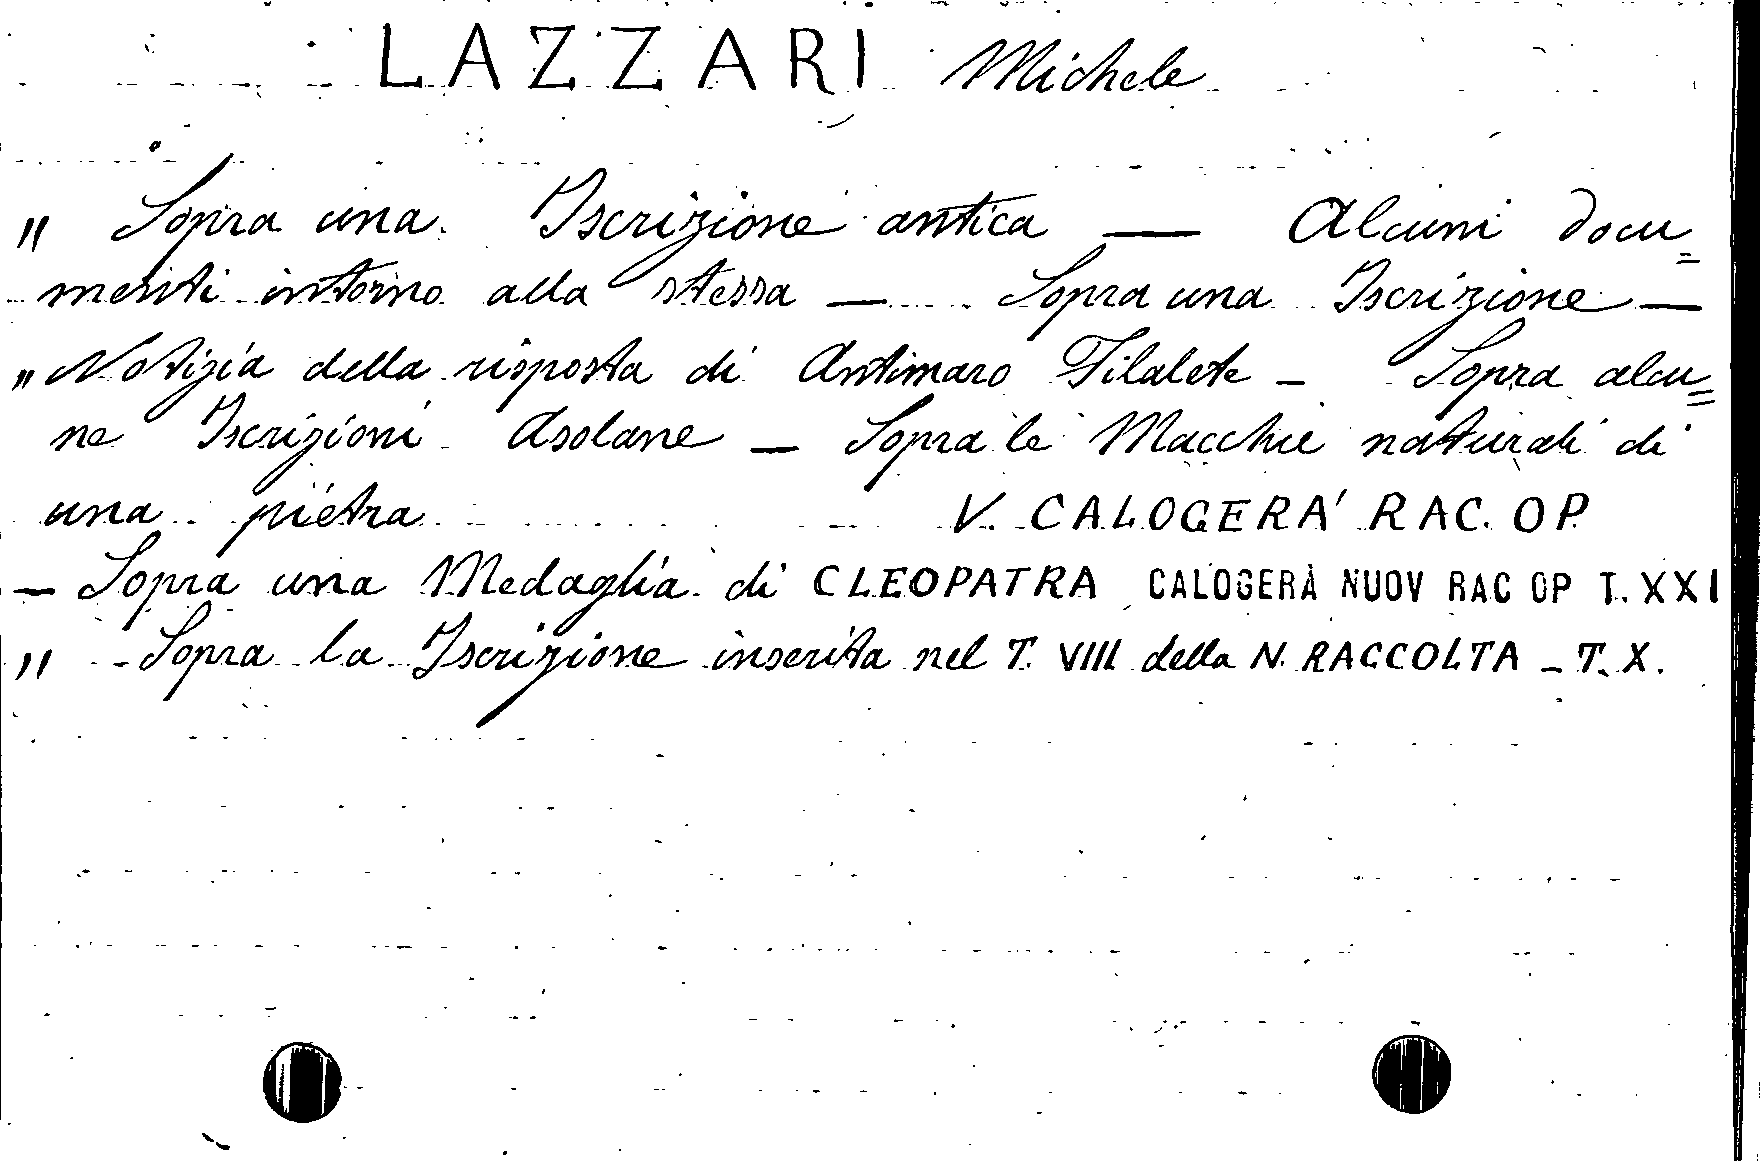 LAZZARI Michele
" Sopra una Iscrizione antica — Alcuni docu=
menti intorno alla stessa — Sopra una Iscrizione —
" Notizia della risposta di Antimaro Filalete – Sopra alcu=
ne Iscrizioni Asolane — Sopra le Macchie naturali di
una pietra V. CALOGERA' RAC. OP.
— Sopra una Medaglia di CLEOPATRA CALOGERÀ NUOV RAC OP T. XXI
" - Sopra la Iscrizione inserita nel T. VIII della N. RACCOLTA – T. X.